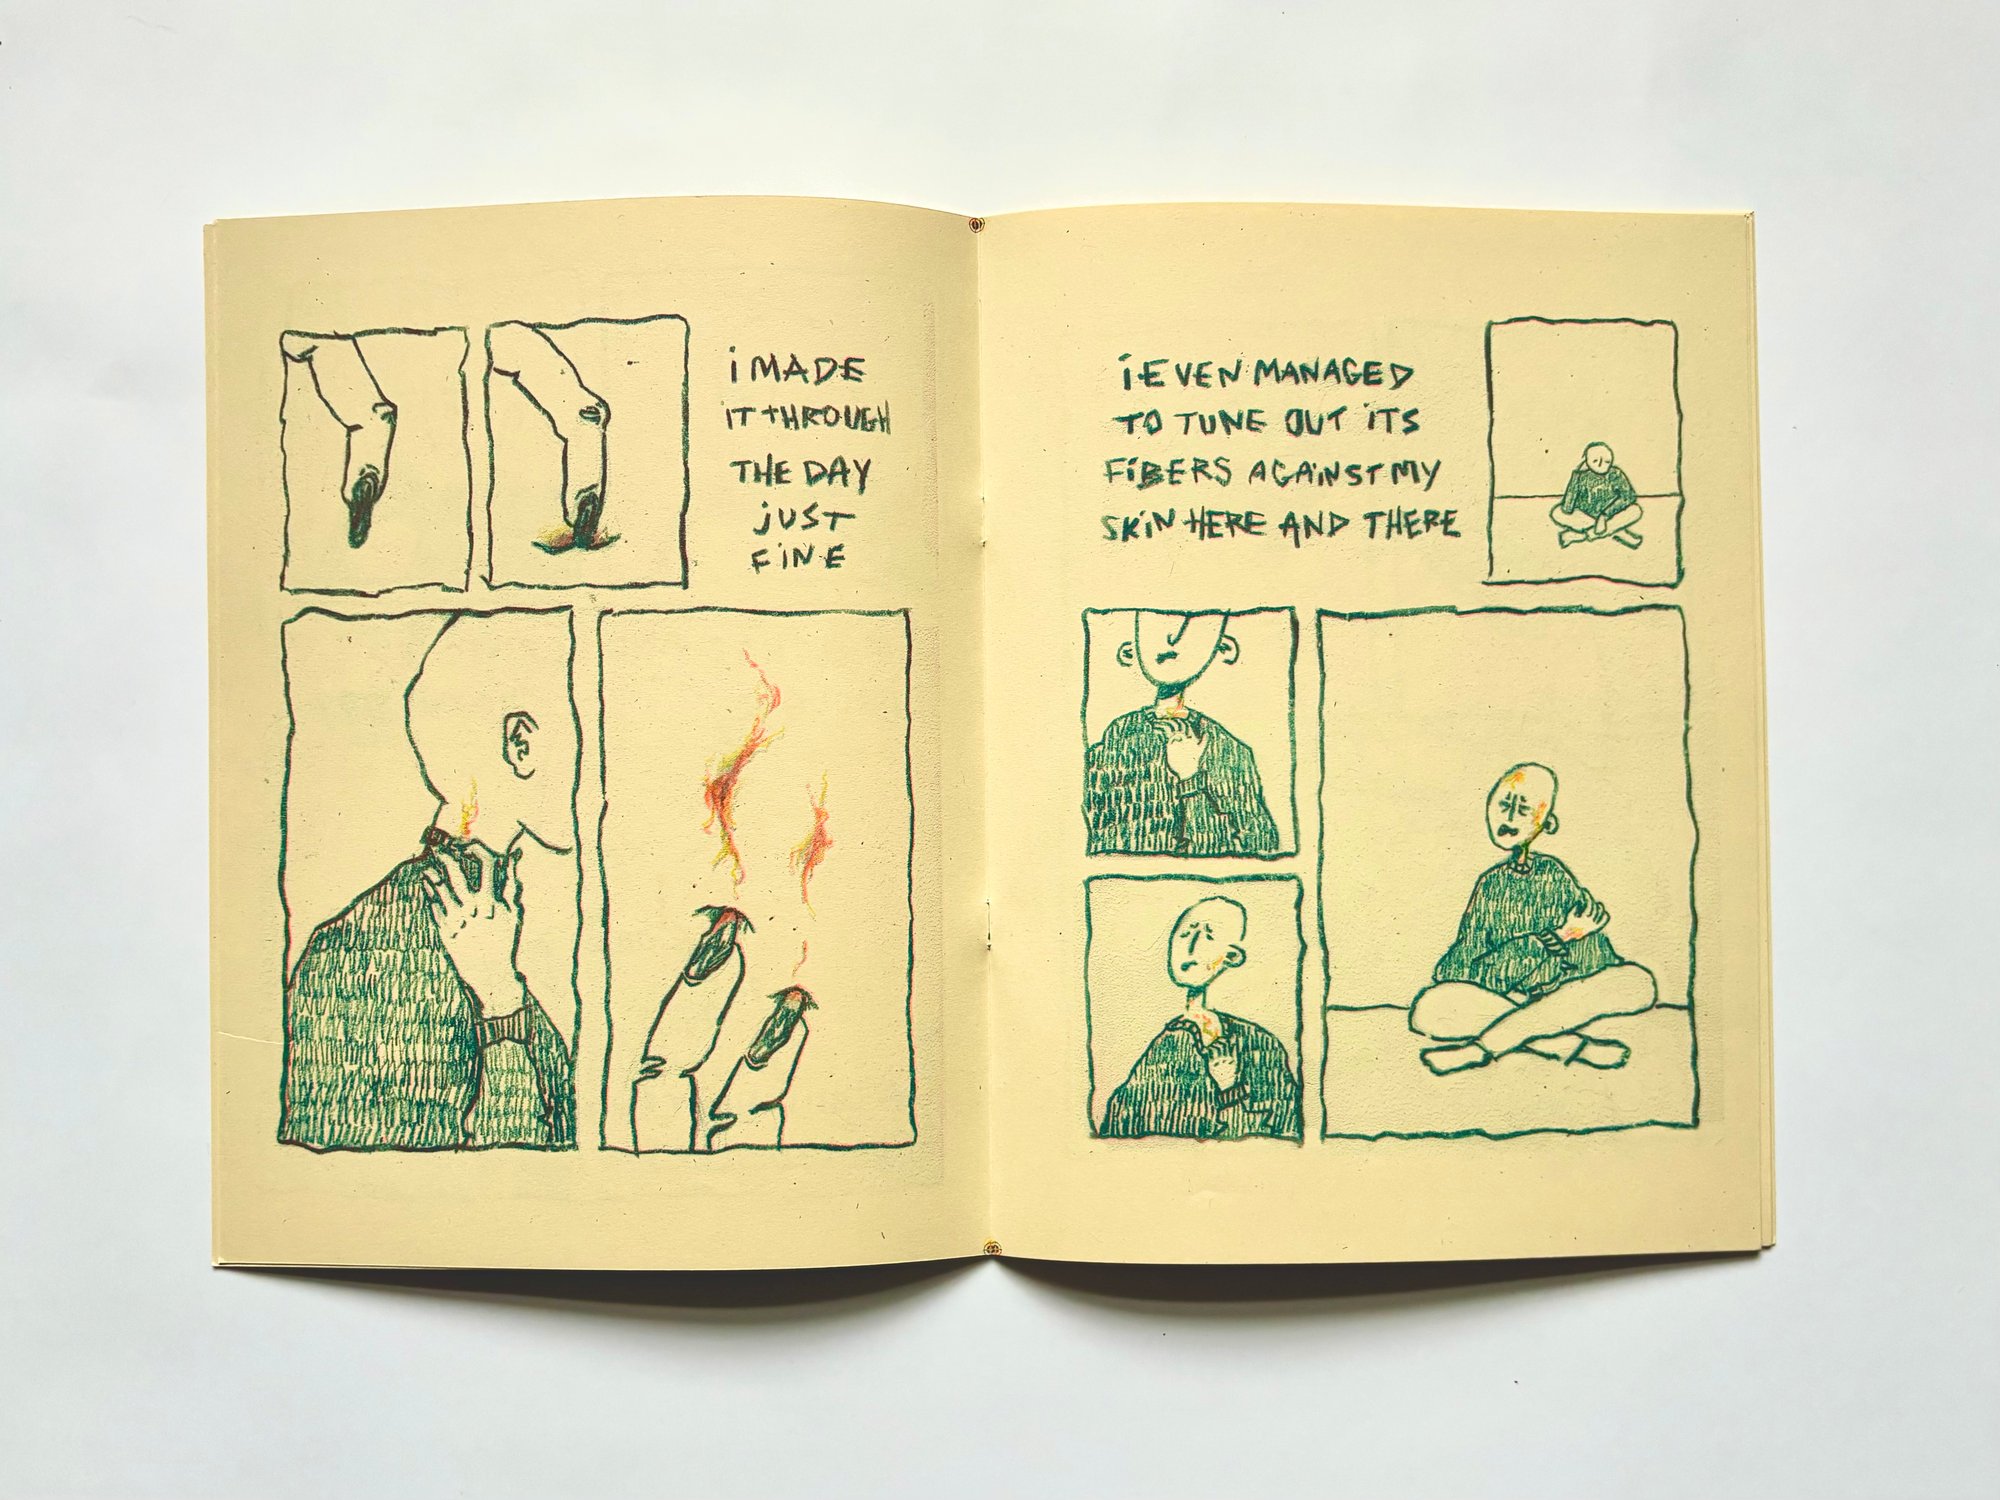 i MADE
iT THROUGH
THE DAY
jUST
FiNE
i EVEN MANAGED
TO TUNE OUT iTS
FiBERS AGAiNST MY
SKiN HERE AND THERE